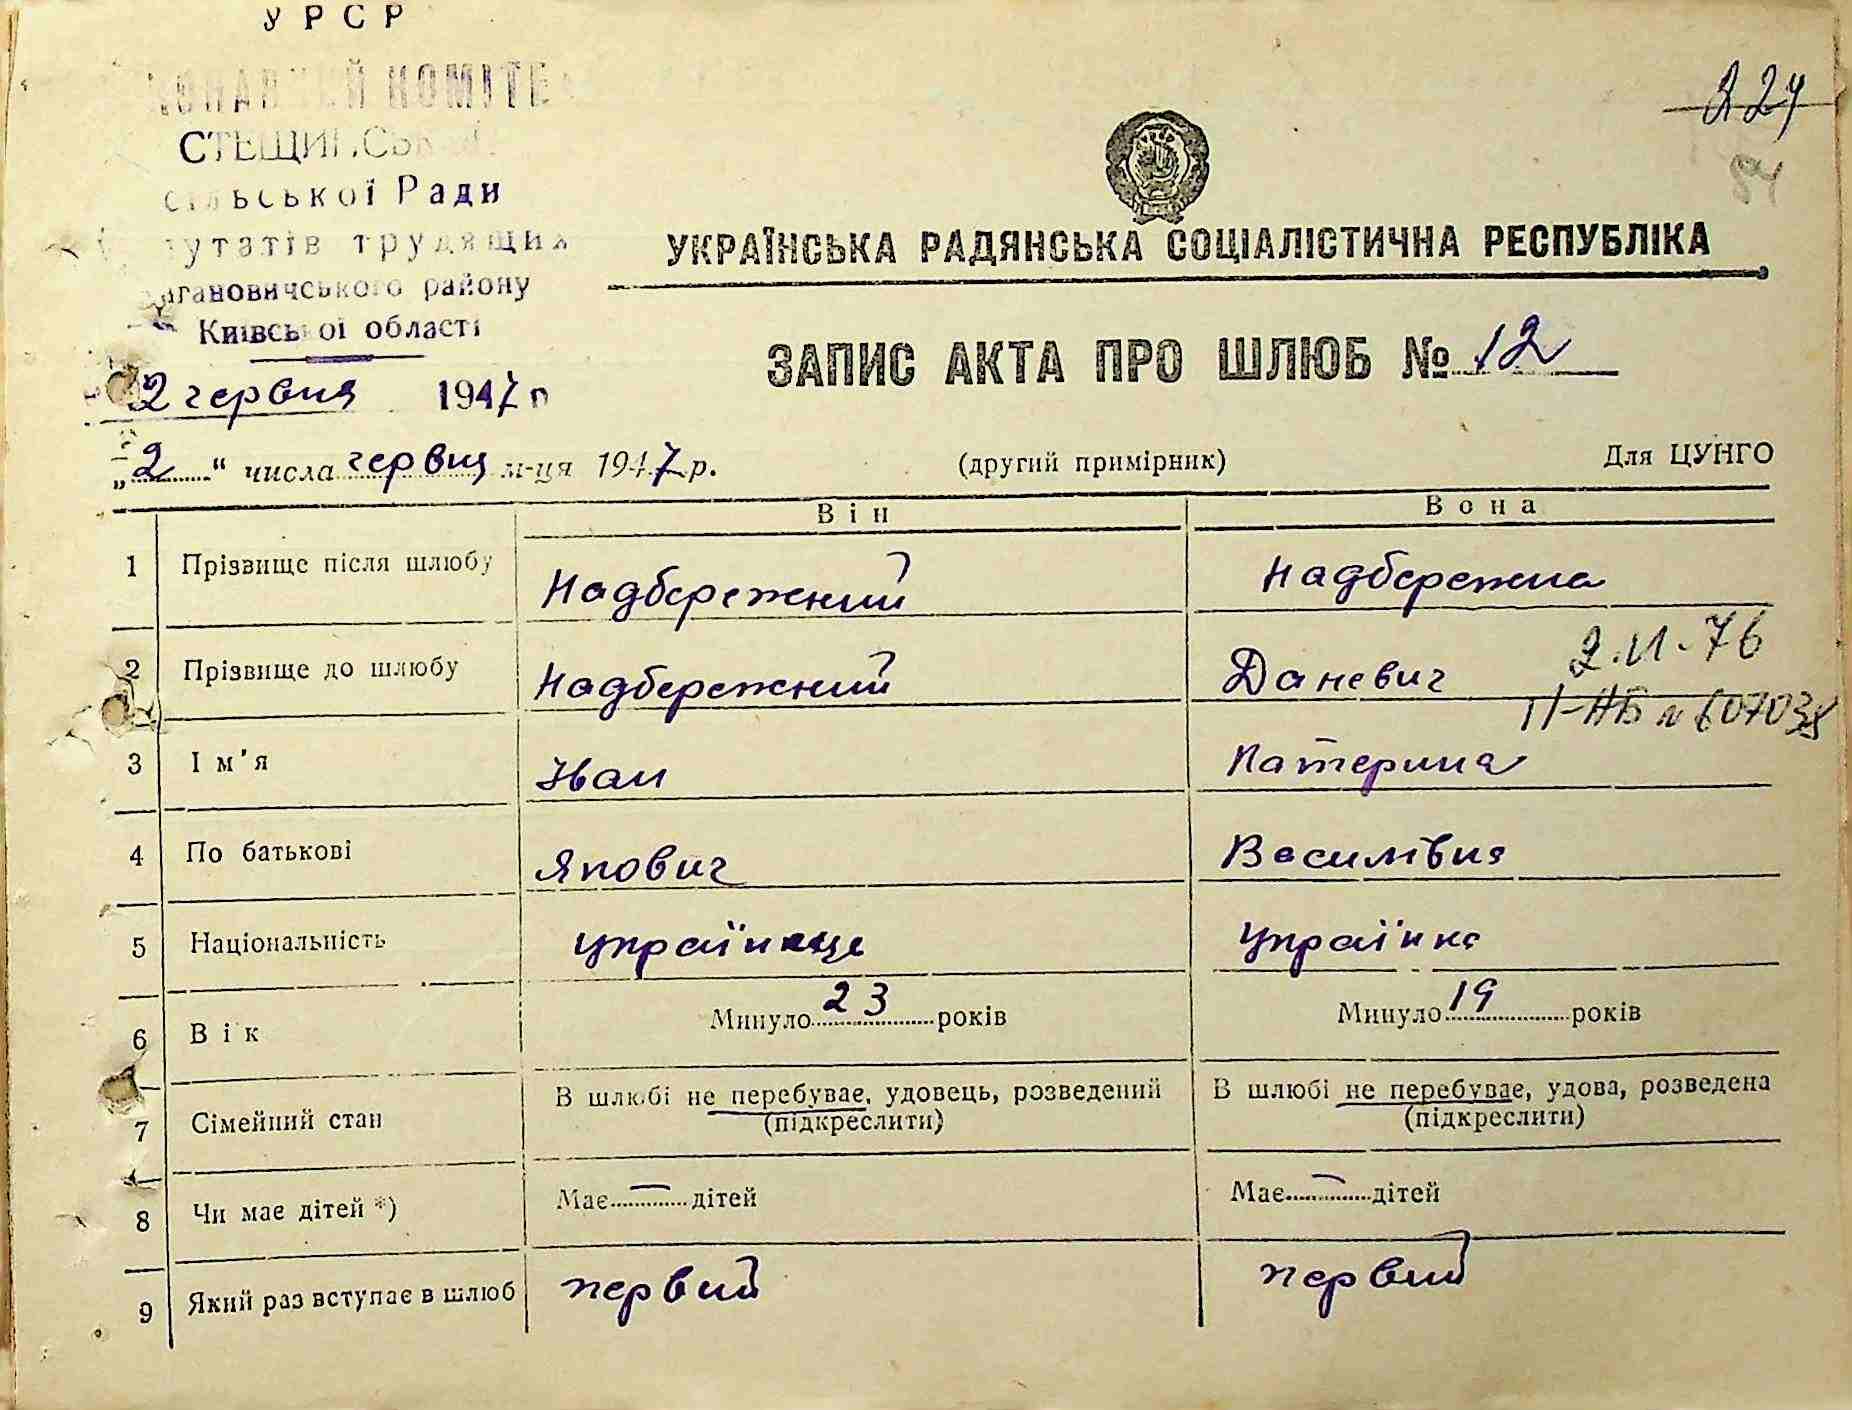 УРСР
СТЕЩИНСЬК
сільської Ради
путатів трудящих
агановичського району
Київської області
2 червня 1947 р
224
84
УКРАЇНСЬКА РАДЯНСЬКА СОЦІАЛІСТИЧНА РЕСПУБЛІКА
ЗАПИС АКТА ПРО ШЛЮБ № 12
„2“ числа червня м-ця 1947 р. (другий примірник) Для ЦУНГО
Він Вона
1 Прізвище після шлюбу Надбережний Надбережна
2 Прізвище до шлюбу Надбережний Даневич 2.VI-76
II-НБ №607038
3 Ім'я Іван Катерина
4 По батькові Якович Василівна
5 Національність українець українка
6 Вік Минуло 23 років Минуло 19 років
7 Сімейний стан В шлюбі не перебуває, удовець, розведений В шлюбі не перебуває, удова, розведена
(підкреслити) (підкреслити)
8 Чи має дітей *) Має — дітей Має — дітей
9 Який раз вступає в шлюб первий первий